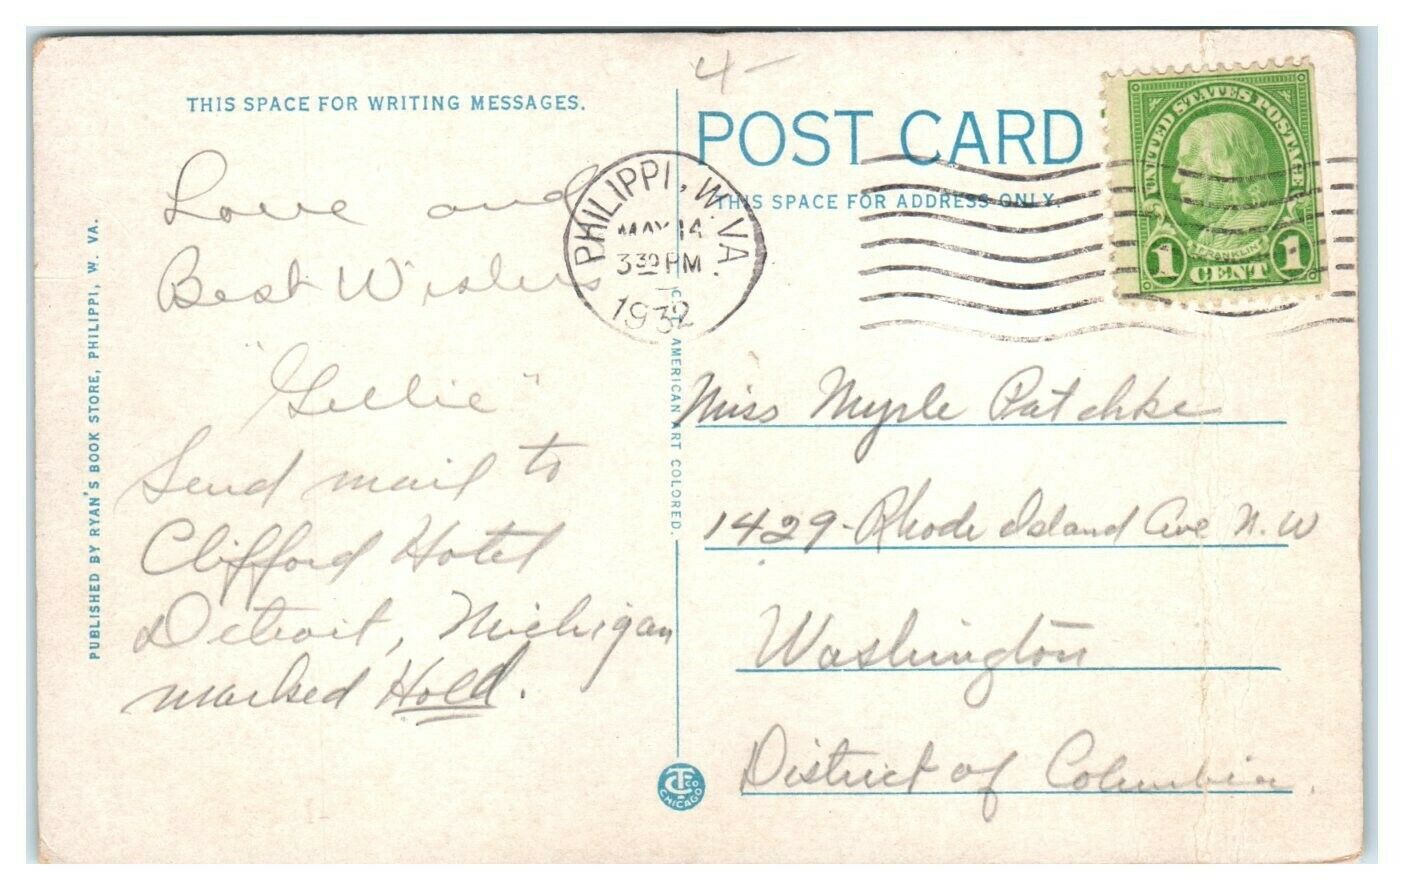 4-
THIS SPACE FOR WRITING MESSAGES.
POST CARD
THIS SPACE FOR ADDRESS ONLY.
UNITED STATES POSTAGE
FRANKLIN
1 CENT 1
PHILIPPI, W. VA.
MAY 14
3 30 PM
1932
Love and
Best Wishes
"Gellie"
Send mail to
Clifford Hotel
Detroit, Michigan
marked Hold.
Miss Myrle Ratchke
1429-Rhode Island Ave N.W
Washington
District of Columbia.
PUBLISHED BY RYAN'S BOOK STORE, PHILIPPI, W. VA.
AMERICAN ART COLORED.
CHICAGO